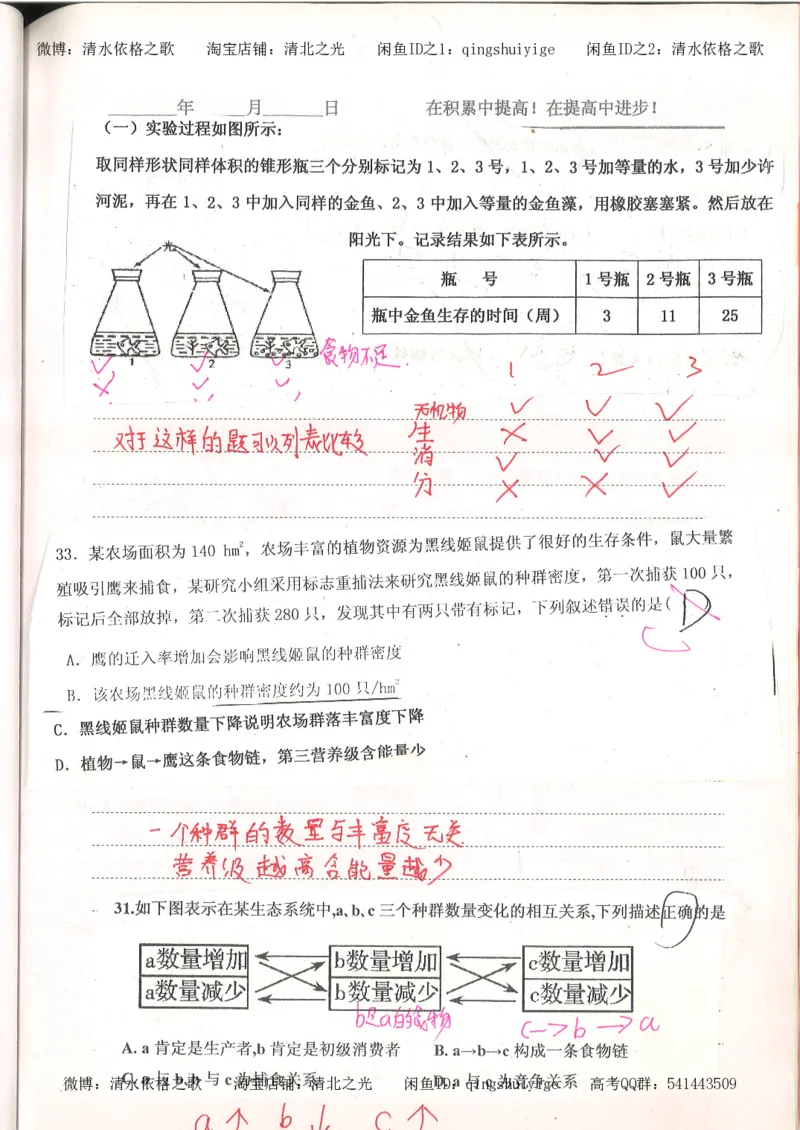 微博：清水依格之歌 淘宝店铺：清北之光 闲鱼ID之1：qingshuiyige 闲鱼ID之2：清水依格之歌
年 月 日 在积累中提高！在提高中进步！
（一）实验过程如图所示：
取同样形状同样体积的锥形瓶三个分别标记为 1、2、3 号，1、2、3 号加等量的水，3 号加少许
河泥，再在 1、2、3 中加入同样的金鱼、2、3 中加入等量的金鱼藻，用橡胶塞塞紧。然后放在
阳光下。记录结果如下表所示。
光
瓶 号 1 号瓶 2 号瓶 3 号瓶
瓶中金鱼生存的时间（周） 3 11 25
1 2 3
食物不足
1 2 3
无机物 ✓ ✓ ✓
生 × ✓ ✓
消 ✓ ✓ ✓
分 × × ✓
对于这样的题可以列表比较
33．某农场面积为 140 hm²，农场丰富的植物资源为黑线姬鼠提供了很好的生存条件，鼠大量繁
殖吸引鹰来捕食，某研究小组采用标志重捕法来研究黑线姬鼠的种群密度，第一次捕获 100 只，
标记后全部放掉，第二次捕获 280 只，发现其中有两只带有标记，下列叙述错误的是( D
C
A．鹰的迁入率增加会影响黑线姬鼠的种群密度
B．该农场黑线姬鼠的种群密度约为 100 只/hm²
C．黑线姬鼠种群数量下降说明农场群落丰富度下降
D．植物→鼠→鹰这条食物链，第三营养级含能量少
一个种群的数量与丰富度无关
营养级越高含能量越少
31.如下图表示在某生态系统中,a、b、c 三个种群数量变化的相互关系,下列描述正确的是
a数量增加 b数量增加 c数量增加
a数量减少 b数量减少 c数量减少
b是a的食物 c→b→a
A. a 肯定是生产者,b 肯定是初级消费者 B. a→b→c 构成一条食物链
C. a 与 b,b 与 c 为捕食关系 D. a 与 c 为竞争关系
微博：清水依格之歌 淘宝店铺：清北之光 闲鱼ID：qingshuiyige 高考QQ群：541443509
a↑ b↓ c↑